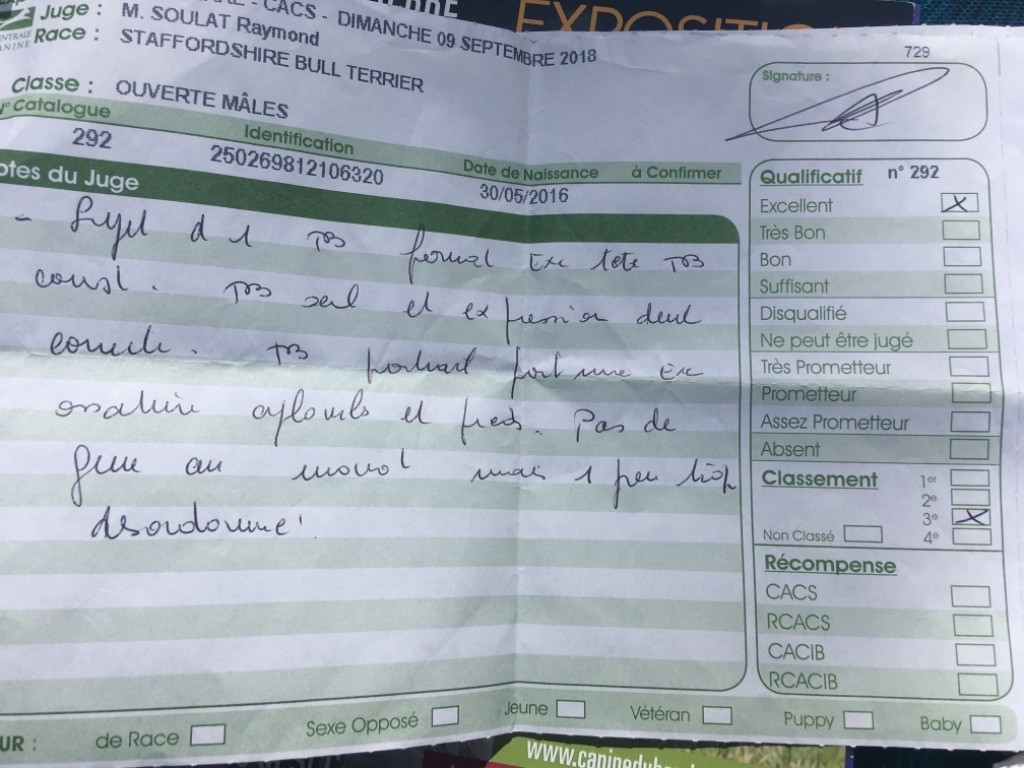 CACS - DIMANCHE 09 SEPTEMBRE 2018
EXPOSITIO
Juge : M. SOULAT Raymond
Race : STAFFORDSHIRE BULL TERRIER
Classe : OUVERTE MÂLES
N° Catalogue Identification Date de Naissance à Confirmer
292 250269812106320 30/05/2016
otes du Juge
- Sujet d 1 TB format Exc tete TB
const. TB oeil et expression dent
correcte. TB portrait Exc
ossature aplombs et pieds. Pas de
gene au mais 1 peu trop
desordonné!
729
Signature :
Qualificatif n° 292
Excellent X
Très Bon
Bon
Suffisant
Disqualifié
Ne peut être jugé
Très Prometteur
Prometteur
Assez Prometteur
Absent
Classement 1er
2e
3e X
Non Classé 4e
Récompense
CACS
RCACS
CACIB
RCACIB
UR : de Race Sexe Opposé Jeune Vétéran Puppy Baby